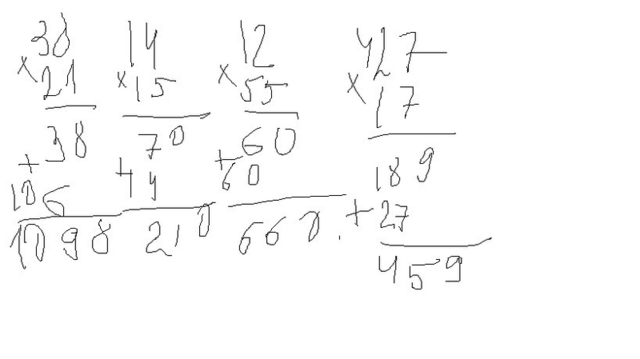 38 14 12 427
×21 ×15 ×55 ×17
38 70 60 189
+ 106 + 14 +60 +27
1098 210 660. 459